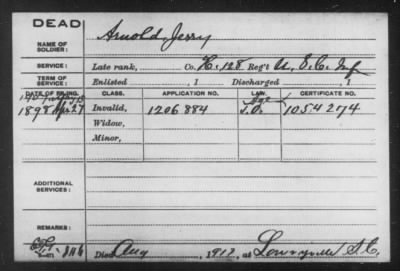 DEAD
NAME OF SOLDIER: Arnold, Jerry
SERVICE: Late rank, Co. H, 128 Reg't U.S.C. Inf
TERM OF SERVICE: Enlisted , 1 Discharged , 1
DATE OF FILING. CLASS. APPLICATION NO. LAW. CERTIFICATE NO.
1907 Age
1898 Apr 27 Invalid, 1206884 S.O. 1054274
Widow,
Minor,
ADDITIONAL SERVICES:
REMARKS:
Died Aug , 1917, at Lowryville S.C.